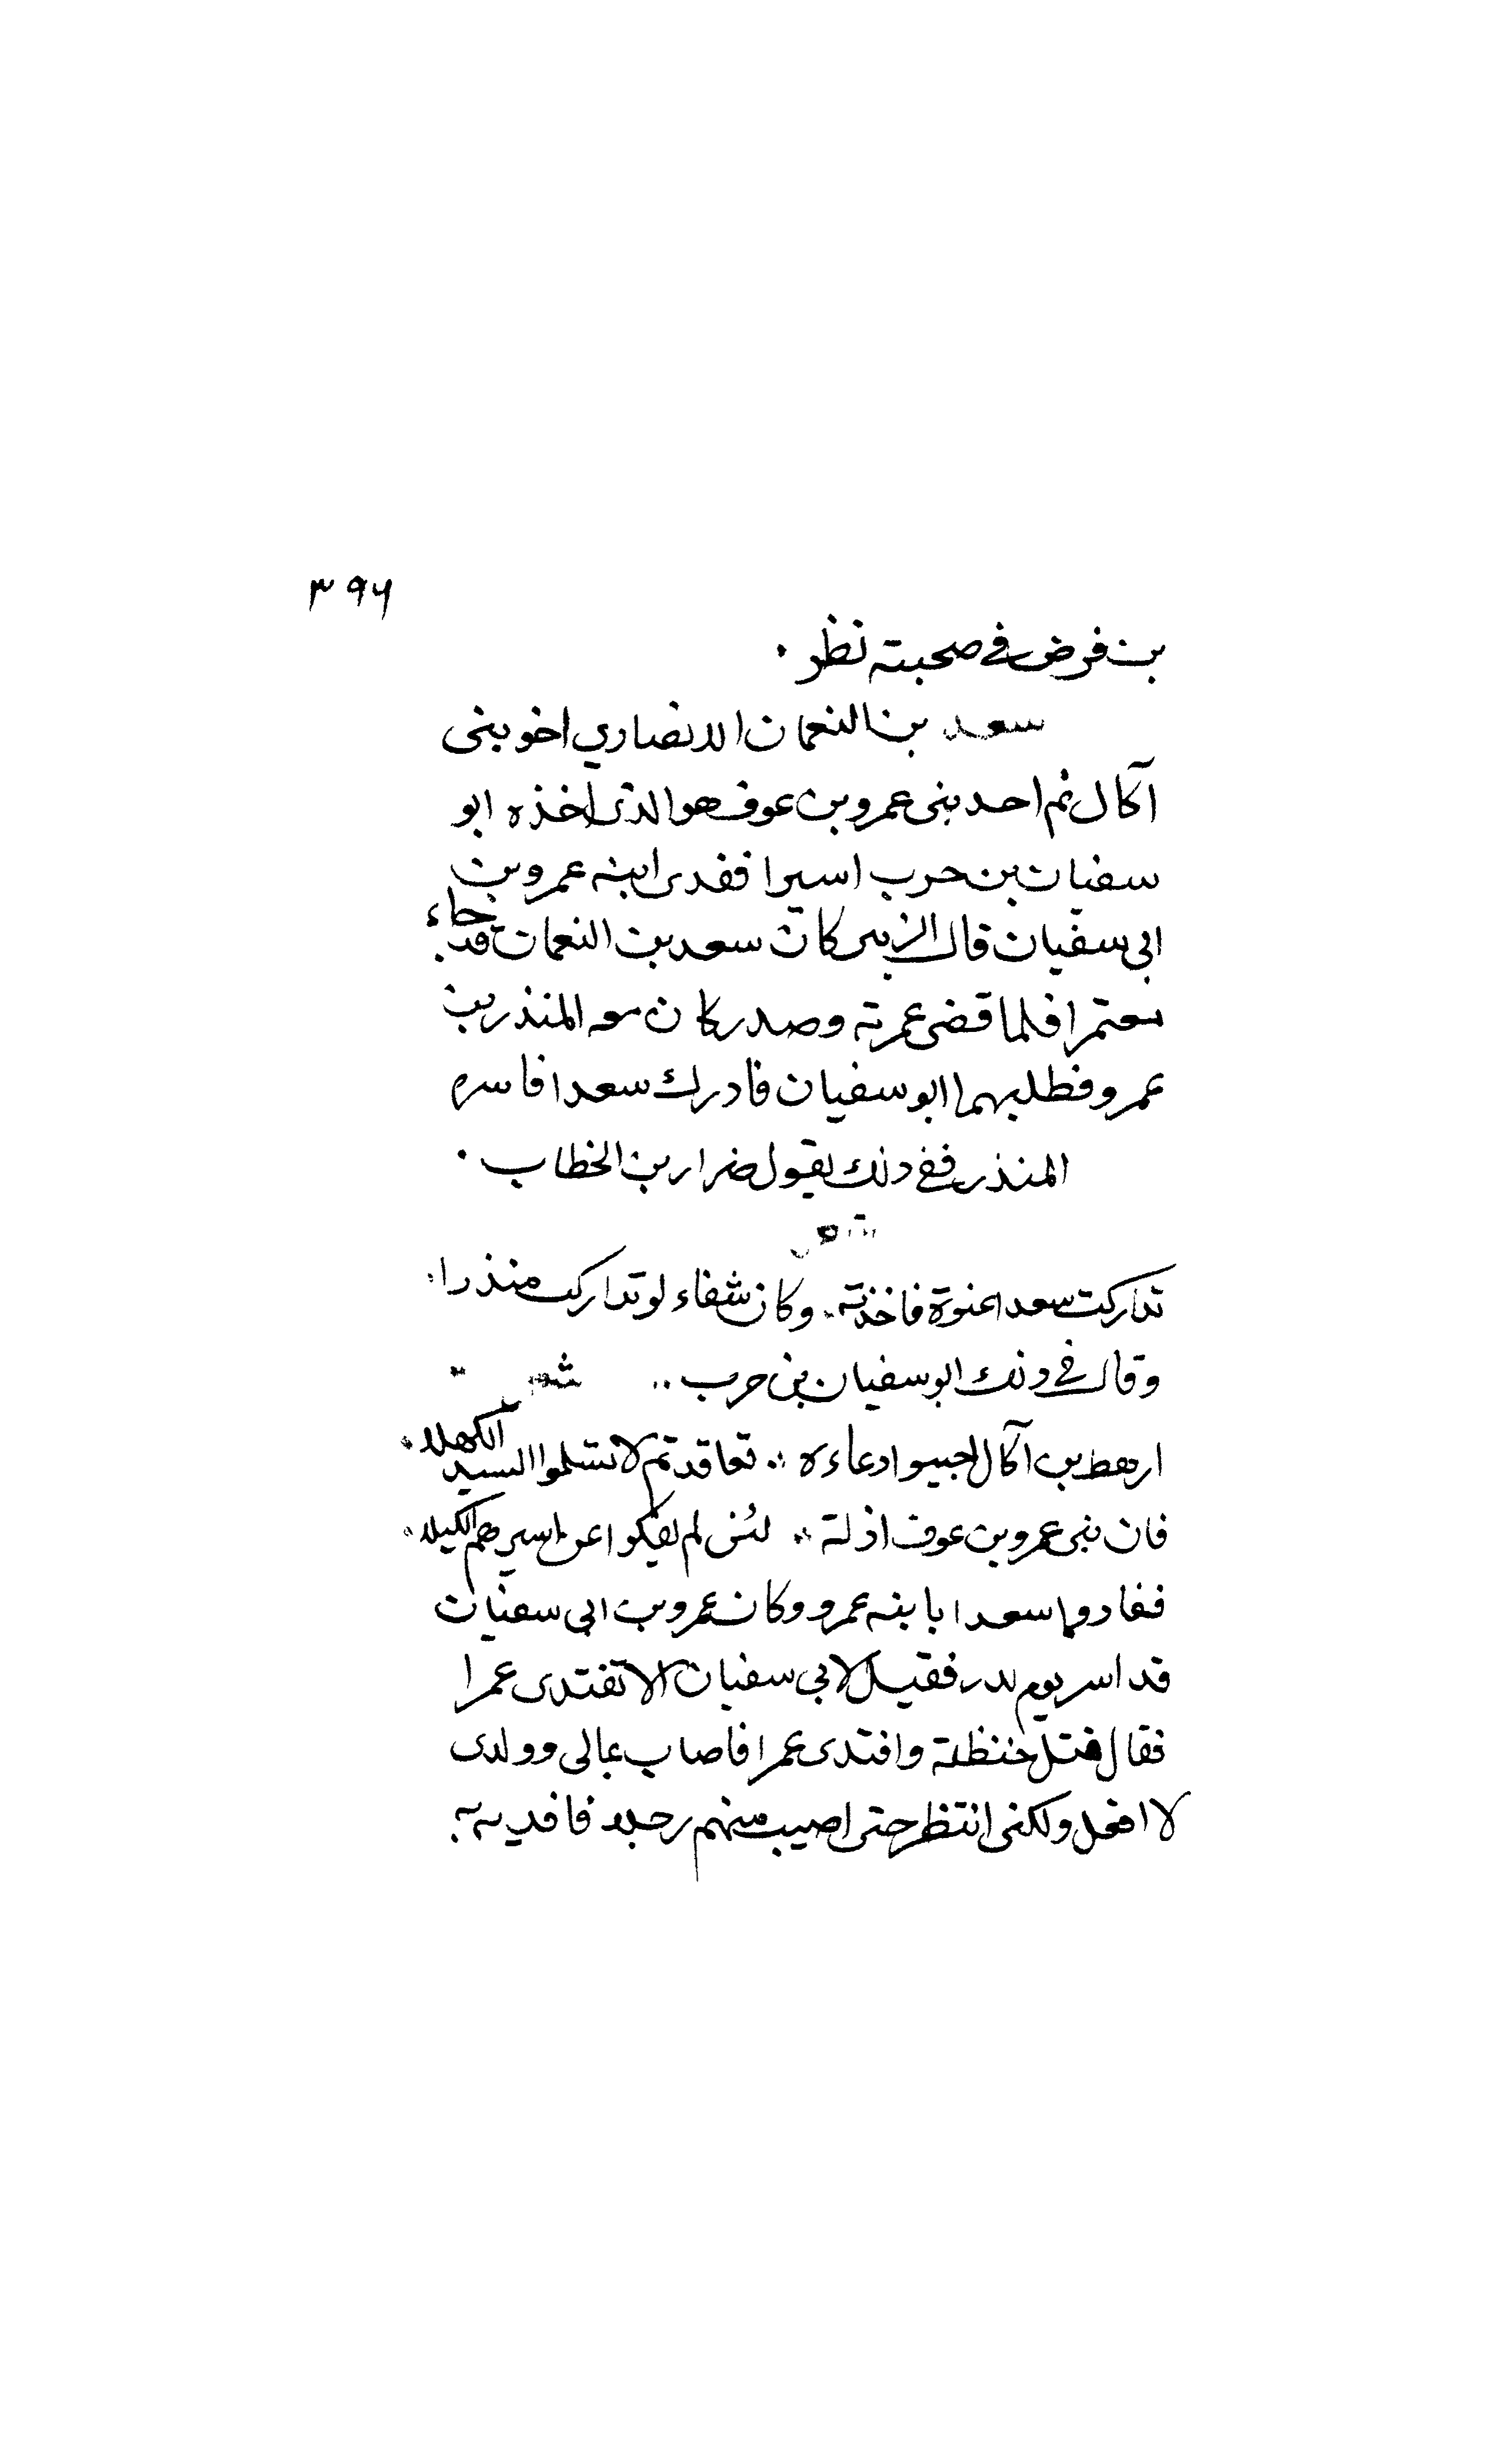 ٣٩٦
بن فرض في صحبته نظر .
سعد بن النعمان الانصاري اخو بنى
آكال ثم احد بنى عمرو بن عوف هو الذى اخذه ابو
سفيان بن حرب اسيرا ففدى ابنه عمرو بن
ابى سفيان قال الزبير كان سعد بن النعمان قد جاء
معتمرا فلما قضى عمرته وصدر كان معه المنذر بن
عمرو فطلبهما ابو سفيان فادرك سعدا فاسره
المنذر ففي ذلك يقول ضرار بن الخطاب .
تداركت سعدا عنوة فاخذته . وكان شفاء لو تداركت منذرا .
وقال في ذلك ابو سفيان بن حرب .. شعر
ارهط بن آكال اجيبوا دعاءه .. تعاقدتم لا تسلموا السيد الكهلا .
فان بنى عمرو بن عوف اذلة .. لئن لم يفكوا عن اسيرهم الكبلا .
ففادوا سعدا بابنه عمرو وكان عمرو بن ابى سفيان
قد اسر يوم بدر فقيل لابي سفيان الا تفتدى عمرا
فقال قتل حنظلة وافتدى عمرا فاصاب بمالى وولدى
لا افعل ولكنى انتظر حتى اصيب منهم رجلا فافديه به